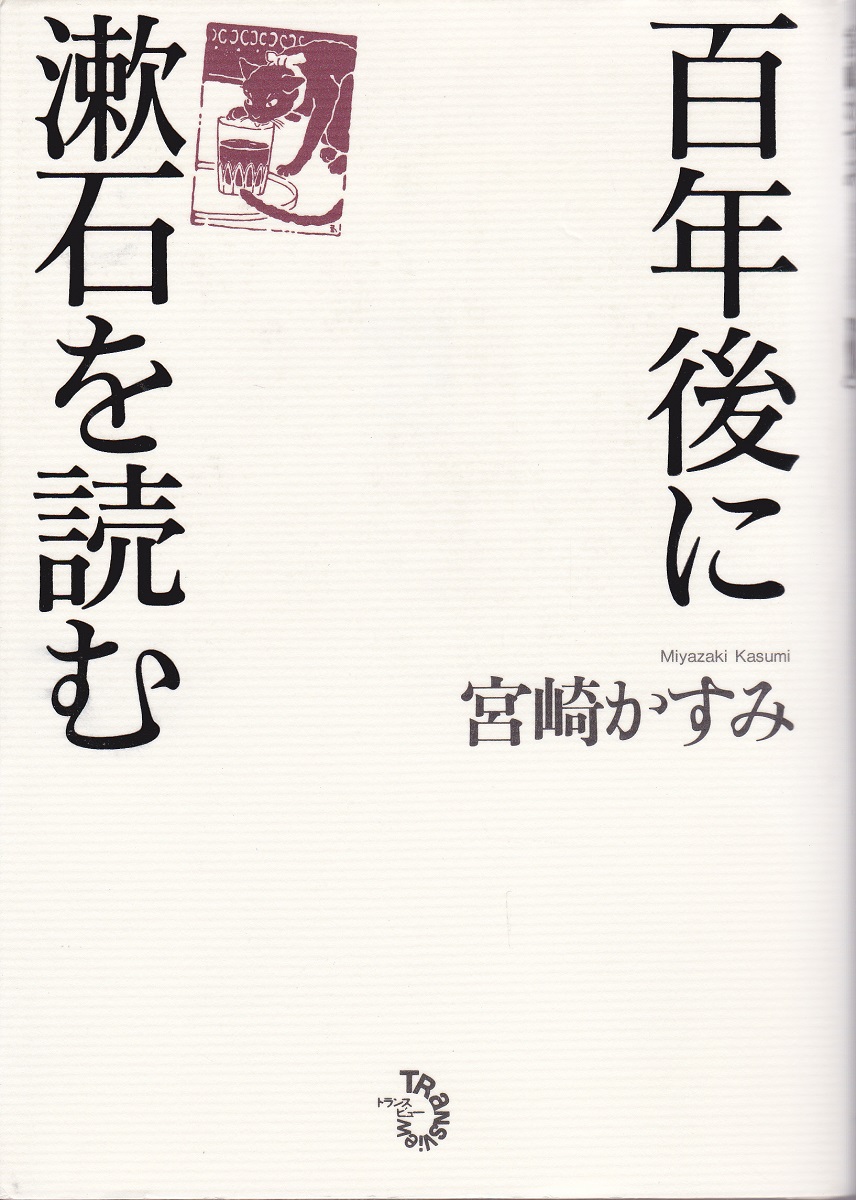 百年後に
漱石を読む
Miyazaki Kasumi
宮崎かすみ
TRansview
トランス
ビュー